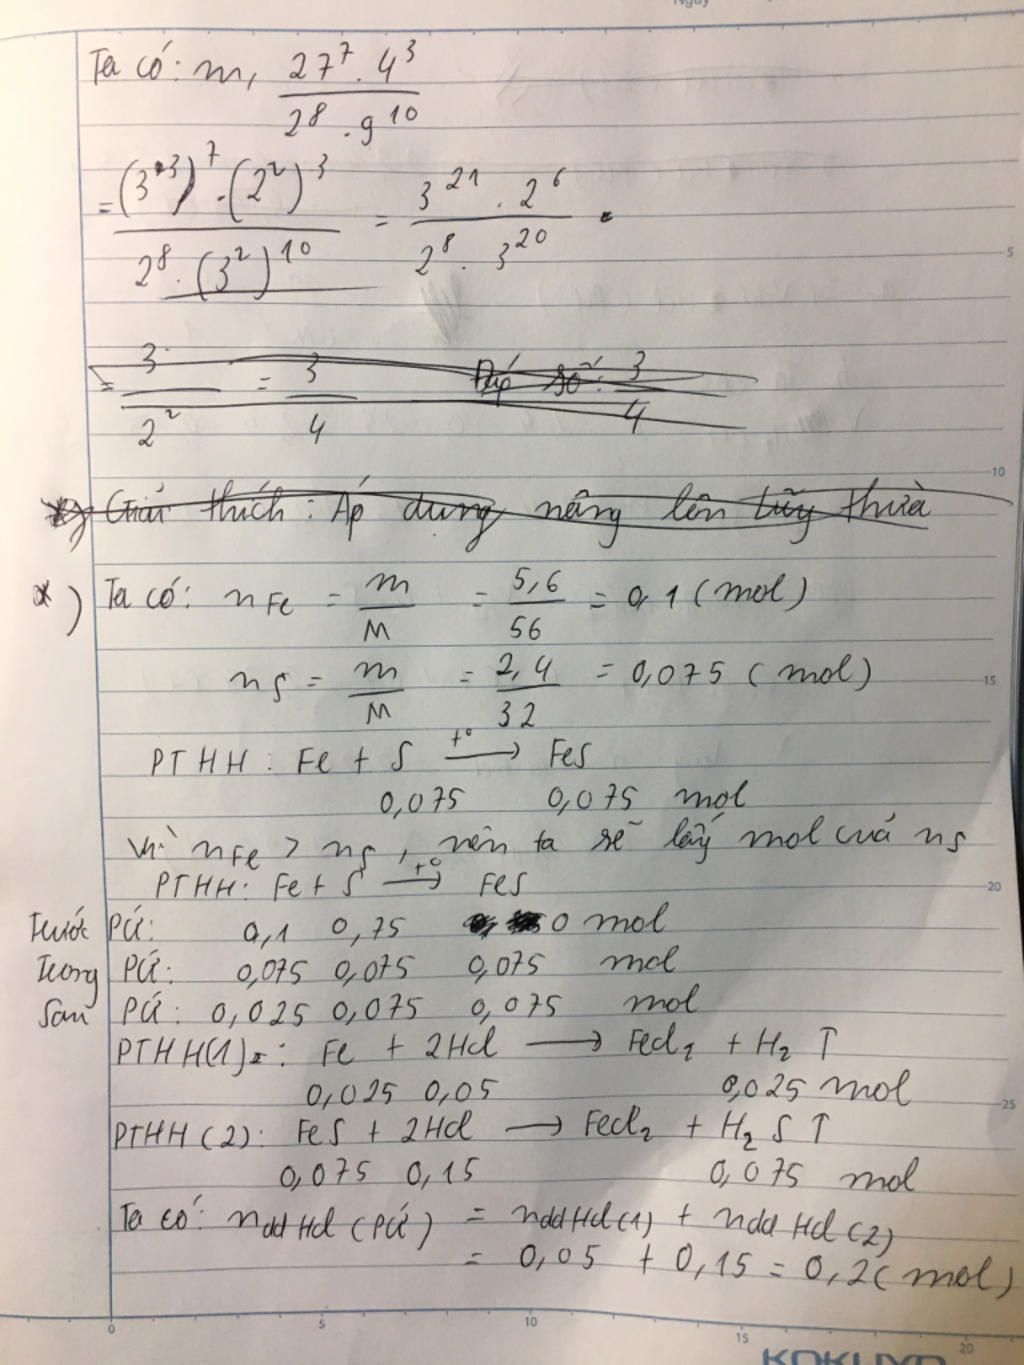 Ta có: m, 27^7 . 4^3 / 2^8 . 9^10
= (3^3)^7 . (2^2)^3 / 2^8 . (3^2)^10 = 3^21 . 2^6 / 2^8 . 3^20
= 3 / 2^2 = 3 / 4 Đáp số: 3 / 4
Giải thích: Áp dụng nâng lên lũy thừa
) Ta có: nFe = m / M = 5,6 / 56 = 0,1 (mol)
nS = m / M = 2,4 / 32 = 0,075 (mol)
PTHH: Fe + S t° → FeS
0,075 0,075 mol
Vì nFe > nS, nên ta sẽ lấy mol cuả nS
PTHH: Fe + S t° → FeS
Trước PỨ: 0,1 0,75 0 mol
Trong PỨ: 0,075 0,075 0,075 mol
Sau PỨ: 0,025 0,075 0,075 mol
PTHH(1): Fe + 2HCl → FeCl2 + H2 ↑
0,025 0,05 0,025 mol
PTHH(2): FeS + 2HCl → FeCl2 + H2S ↑
0,075 0,15 0,075 mol
Ta có: nddHCl(PỨ) = nddHCl(1) + nddHCl(2)
= 0,05 + 0,15 = 0,2(mol)
5
10
15
20
25
0 5 10 15 20
KOKUYO